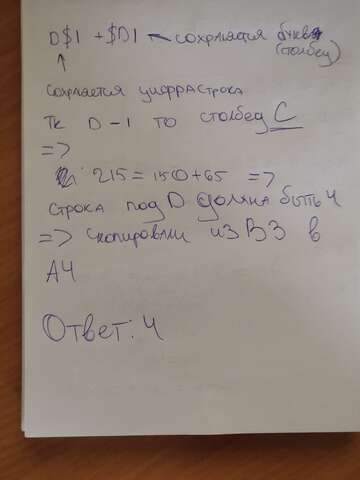 D$1 + $D1 ← сохраняется буква
(столбец)
↑
сохраняется цифра строка
тк D-1 то столбец C
=>
215 = 150 + 65 =>
строка под D должна быть 4
=> скопировали из B3 в
A4
Ответ: 4